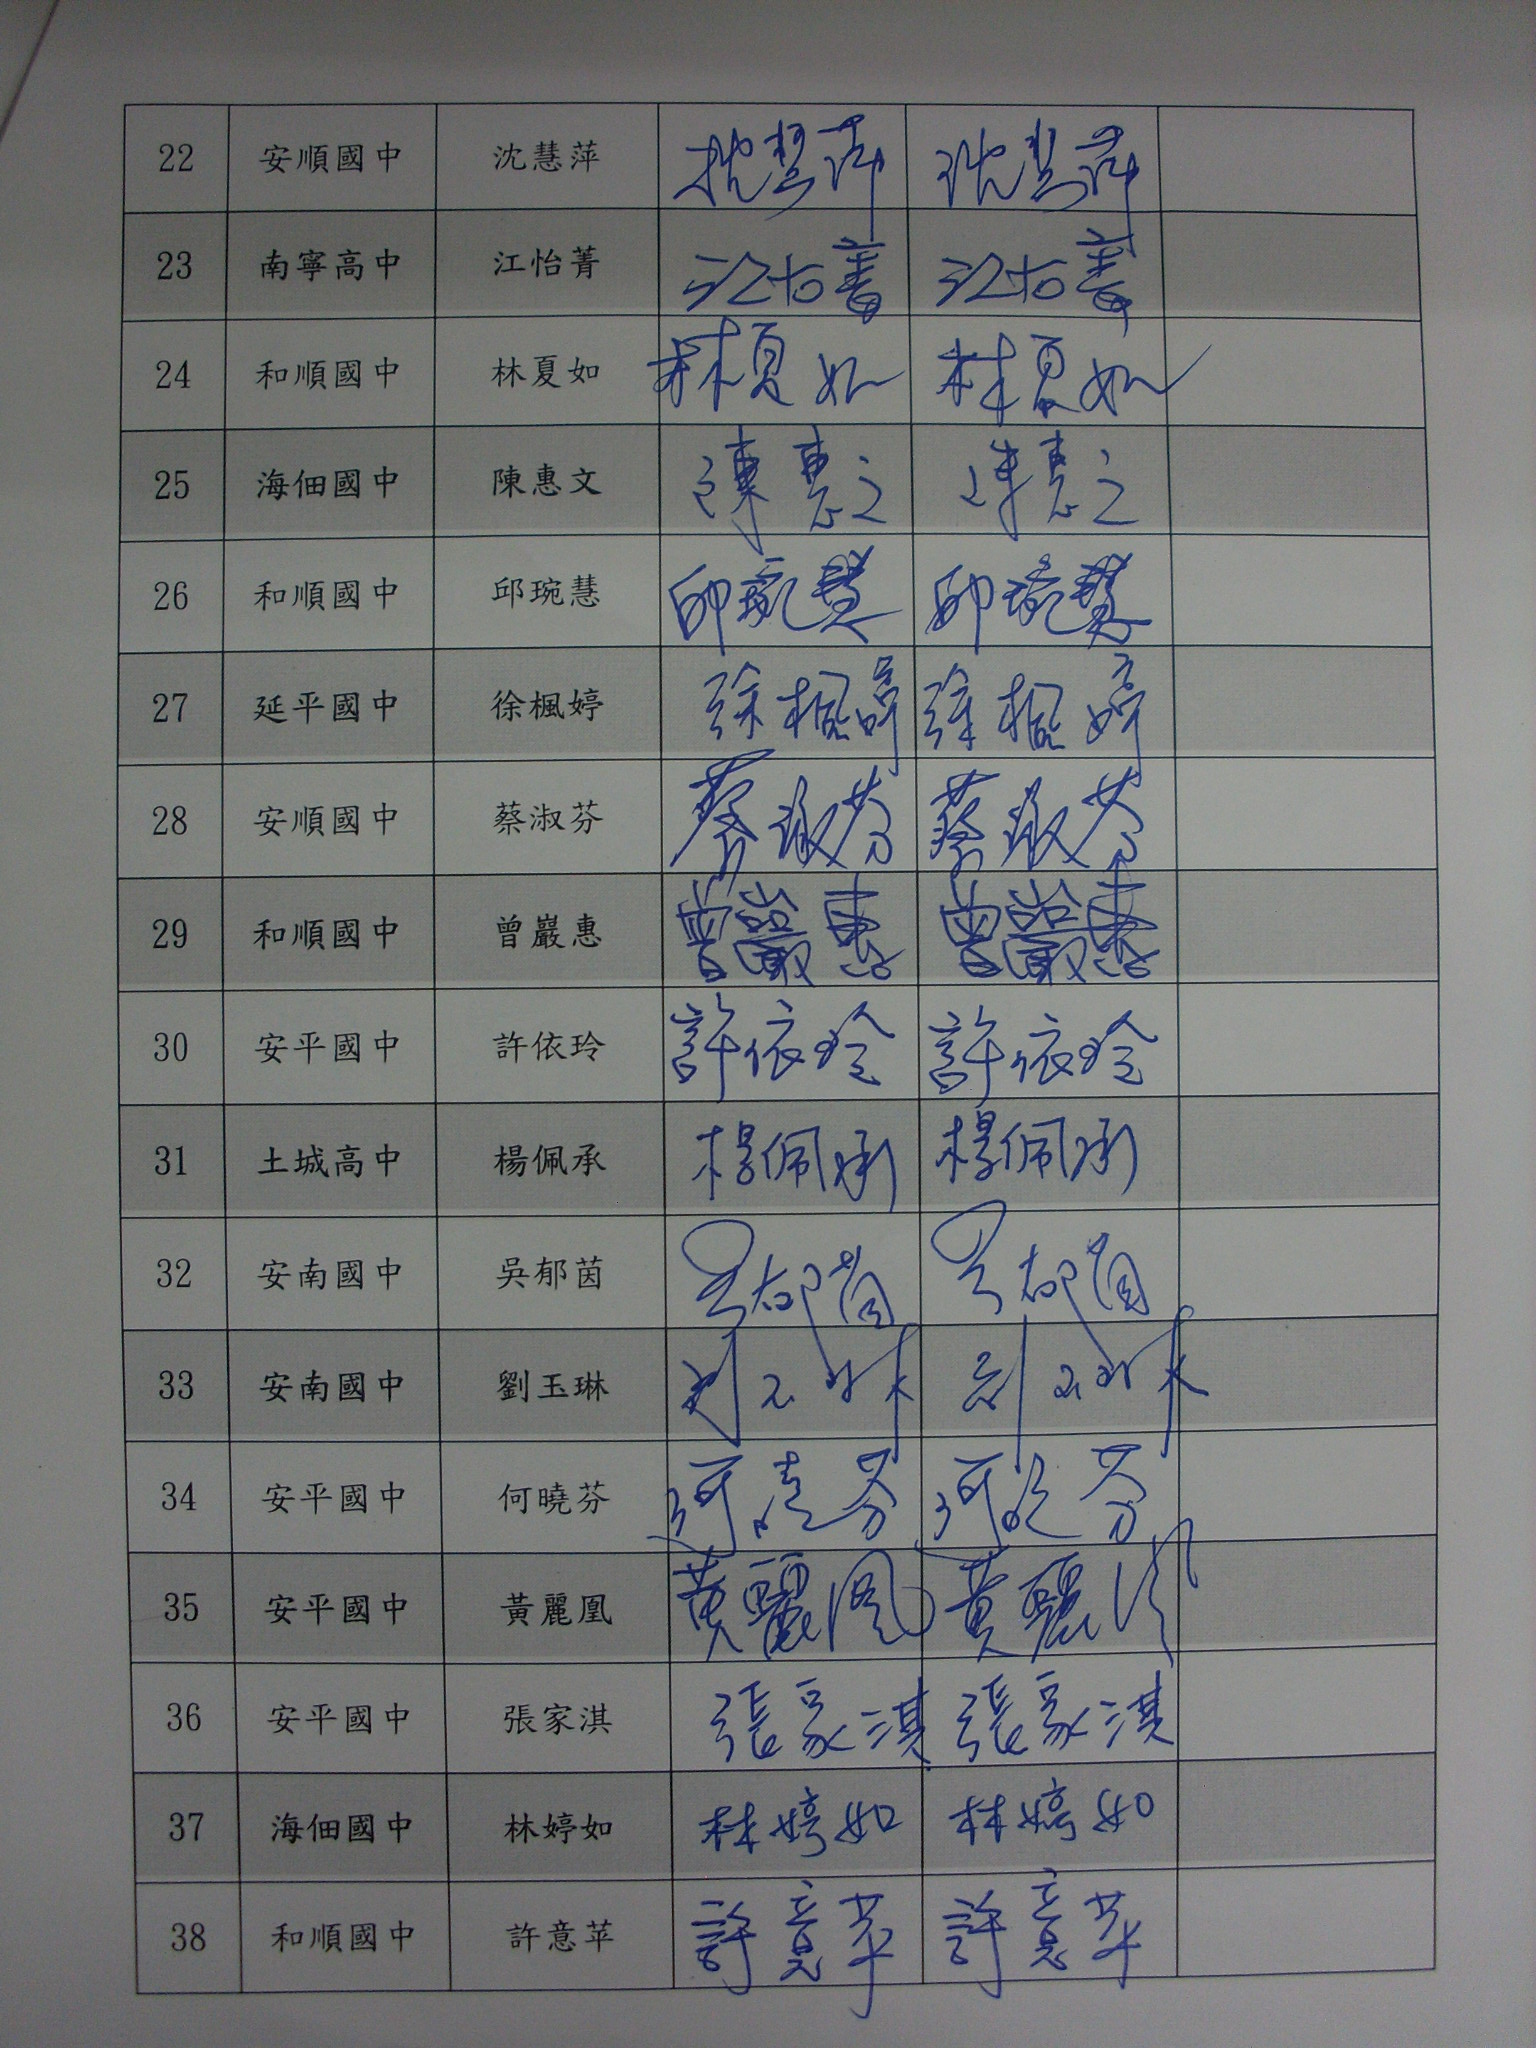 22 安順國中 沈慧萍 沈慧萍 沈慧萍
23 南寧高中 江怡菁 江怡菁 江怡菁
24 和順國中 林夏如 林夏如 林夏如
25 海佃國中 陳惠文 陳惠文 陳惠文
26 和順國中 邱琬慧 邱琬慧 邱琬慧
27 延平國中 徐楓婷 徐楓婷 徐楓婷
28 安順國中 蔡淑芬 蔡淑芬 蔡淑芬
29 和順國中 曾巖惠 曾巖惠 曾巖惠
30 安平國中 許依玲 許依玲 許依玲
31 土城高中 楊佩承 楊佩承 楊佩承
32 安南國中 吳郁茵 吳郁茵 吳郁茵
33 安南國中 劉玉琳 劉玉琳 劉玉琳
34 安平國中 何曉芬 何曉芬 何曉芬
35 安平國中 黃麗凰 黃麗凰 黃麗凰
36 安平國中 張家淇 張家淇 張家淇
37 海佃國中 林婷如 林婷如 林婷如
38 和順國中 許意苹 許意苹 許意苹